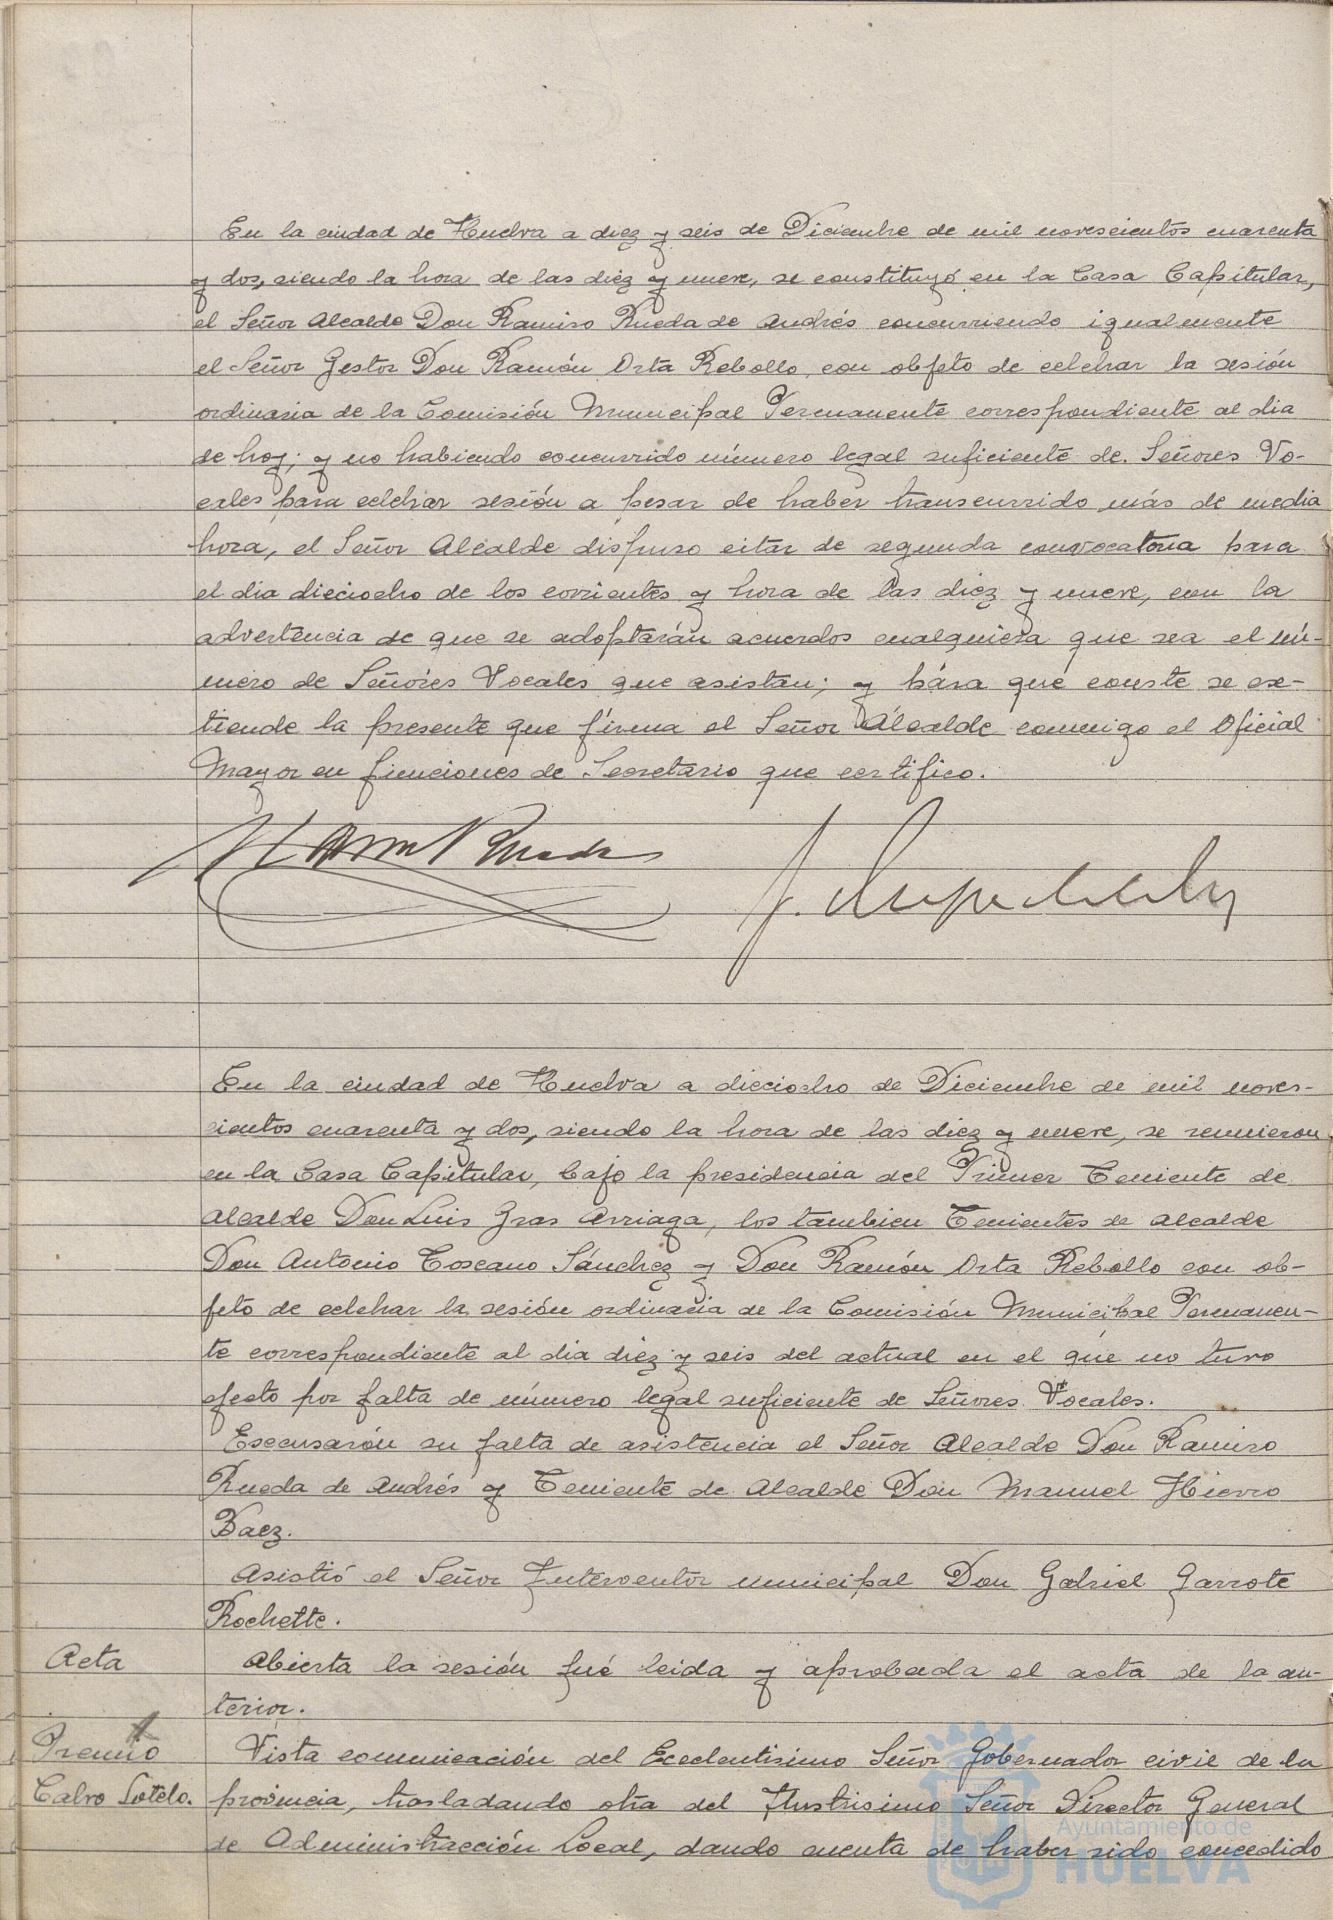 En la ciudad de Huelva a diez y seis de Diciembre de mil novescientos cuarenta
y dos, siendo la hora de las diez y nueve, se constituyó en la Casa Capitular,
el Señor Alcalde Don Ramiro Rueda de Andrés concurriendo igualmente
el Señor Gestor Don Ramón Orta Rebollo, con objeto de celebrar la sesión
ordinaria de la Comisión Municipal Permanente correspondiente al dia
de hoy; y no habiendo concurrido número legal suficiente de Señores Vo-
cales para celebrar sesión a pesar de haber transcurrido más de media
hora, el Señor Alcalde dispuso citar de segunda convocatoria para
el dia dieciocho de los corrientes y hora de las diez y nueve, con la
advertencia de que se adoptarán acuerdos cualquiera que sea el nú-
mero de Señores Vocales que asistan; y para que conste se ex-
tiende la presente que firma el Señor Alcalde conmigo el Oficial
Mayor en funciones de Secretario que certifico.
Rueda
En la ciudad de Huelva a dieciocho de Diciembre de mil noves-
cientos cuarenta y dos, siendo la hora de las diez y nueve, se reunieron
en la Casa Capitular, bajo la presidencia del Primer Teniente de
Alcalde Don Luis Gras Arriaga, los tambien Tenientes de Alcalde
Don Antonio Toscano Sánchez y Don Ramón Orta Rebollo con ob-
jeto de celebrar la sesión ordinaria de la Comisión Municipal Permanen-
te correspondiente al dia diez y seis del actual en el que no tuvo
efecto por falta de número legal suficiente de Señores Vocales.
Escusarón su falta de asistencia el Señor Alcalde Don Ramiro
Rueda de Andrés y Teniente de Alcalde Don Manuel Hierro
Baez.
Asistió el Señor Interventor municipal Don Gabriel Garrote
Rochette.
Acta Abierta la sesión fué leida y aprobada el acta de la an-
terior.
Premio Vista comunicación del Ecselentisimo Señor Gobernador civil de la
Calvo Sotelo. provincia, trasladando otra del Ilustrisimo Señor Director General
de Administracción Local, dando cuenta de haber sido concedido
Ayuntamiento de
HUELVA